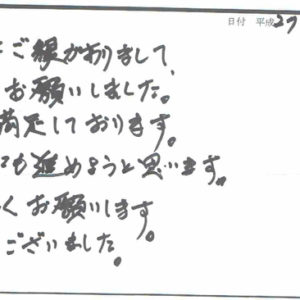 日付 平成27
ご縁がありまして、
お願いしました。
満足しております。
も進めようと思います。
くお願いします。
ございました。